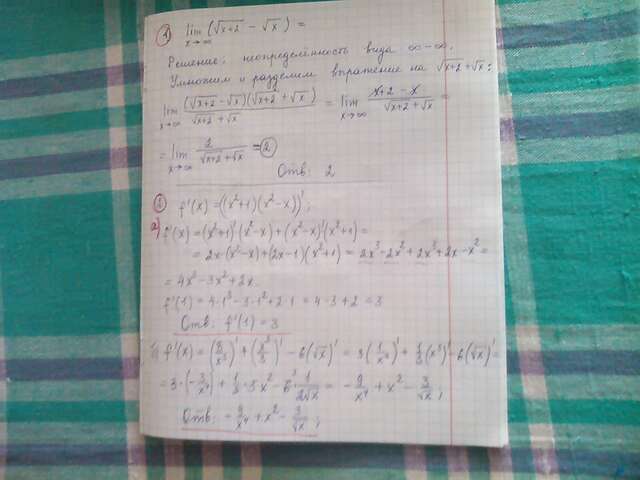 3) lim x→∞ (√x+2 − √x) =
Решение: неопределённость вида ∞−∞.
Умножим и разделим выражение на √x+2 + √x:
lim x→∞ (√x+2 − √x)(√x+2 + √x) / √x+2 + √x = lim x→∞ x+2−x / √x+2 + √x =
= lim x→∞ 2 / √x+2 + √x = 2
Отв: 2
f'(x) = ((x²+1)(x²−x))';
a) f'(x) = (x²+1)'(x²−x) + (x²−x)'(x²+1) =
= 2x·(x²−x) + (2x−1)(x²+1) = 2x³−2x²+2x³+2x−x²=
= 4x³−3x²+2x.
f'(1) = 4·1³−3·1²+2·1 = 4−3+2 = 3
Отв: f'(1) = 3
f'(x) = (3/x³)' + (x³/3)' − 6(√x)' = 3(1/x³)' + 1/3(x³)' − 6(√x)' =
= 3·(−3/x⁴) + 1/3·3x² − 6·1/2√x = −9/x⁴ + x² − 3/√x;
Отв: −9/x⁴ + x² − 3/√x;